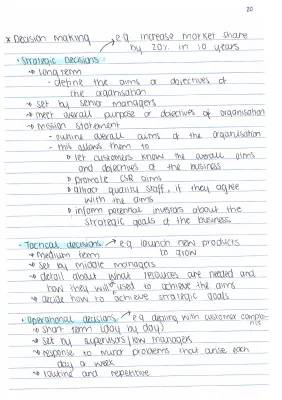 20
* Decision making → eg increase market share
by 20% in 10 years
• Strategic Decisions
→ long term
- define the aims or objectives of
the organisation
→ set by senior managers
→ meet overall purpose or objectives of organisation
→ mission statement
- outline overall aims of the organisation
- this allows them to
↳ let customers know the overall aims
and objectives of the business
↳ promote CSR aims
↳ attract quality staff, if they agree
with the aims
↳ inform potential investors about the
strategic goals of the business
• Tactical decisions → eg launch new products
→ medium term to grow
→ set by middle managers
→ detail about what resources are needed and
how they will be used to achieve the aims
→ decide how to achieve strategic goals
• Operational decisions → eg dealing with customer complai-
nts
→ short term (day by day)
→ set by supervisors / low managers
→ response to minor problems that arise each
day or week
→ routine and repetitive